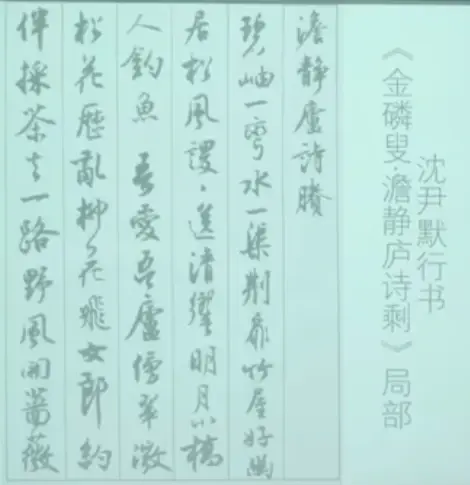 沈尹默行书
《金磷叟·澹静庐诗剩》局部
澹静廬詩賸
碧岫一彎水一渠荆扉竹屋好幽
居松風謖〻送清響明月小橋
人釣魚 吾愛吾廬傍翠微
松花歷亂柳花飛女郎約
伴採茶去一路野風開薔薇